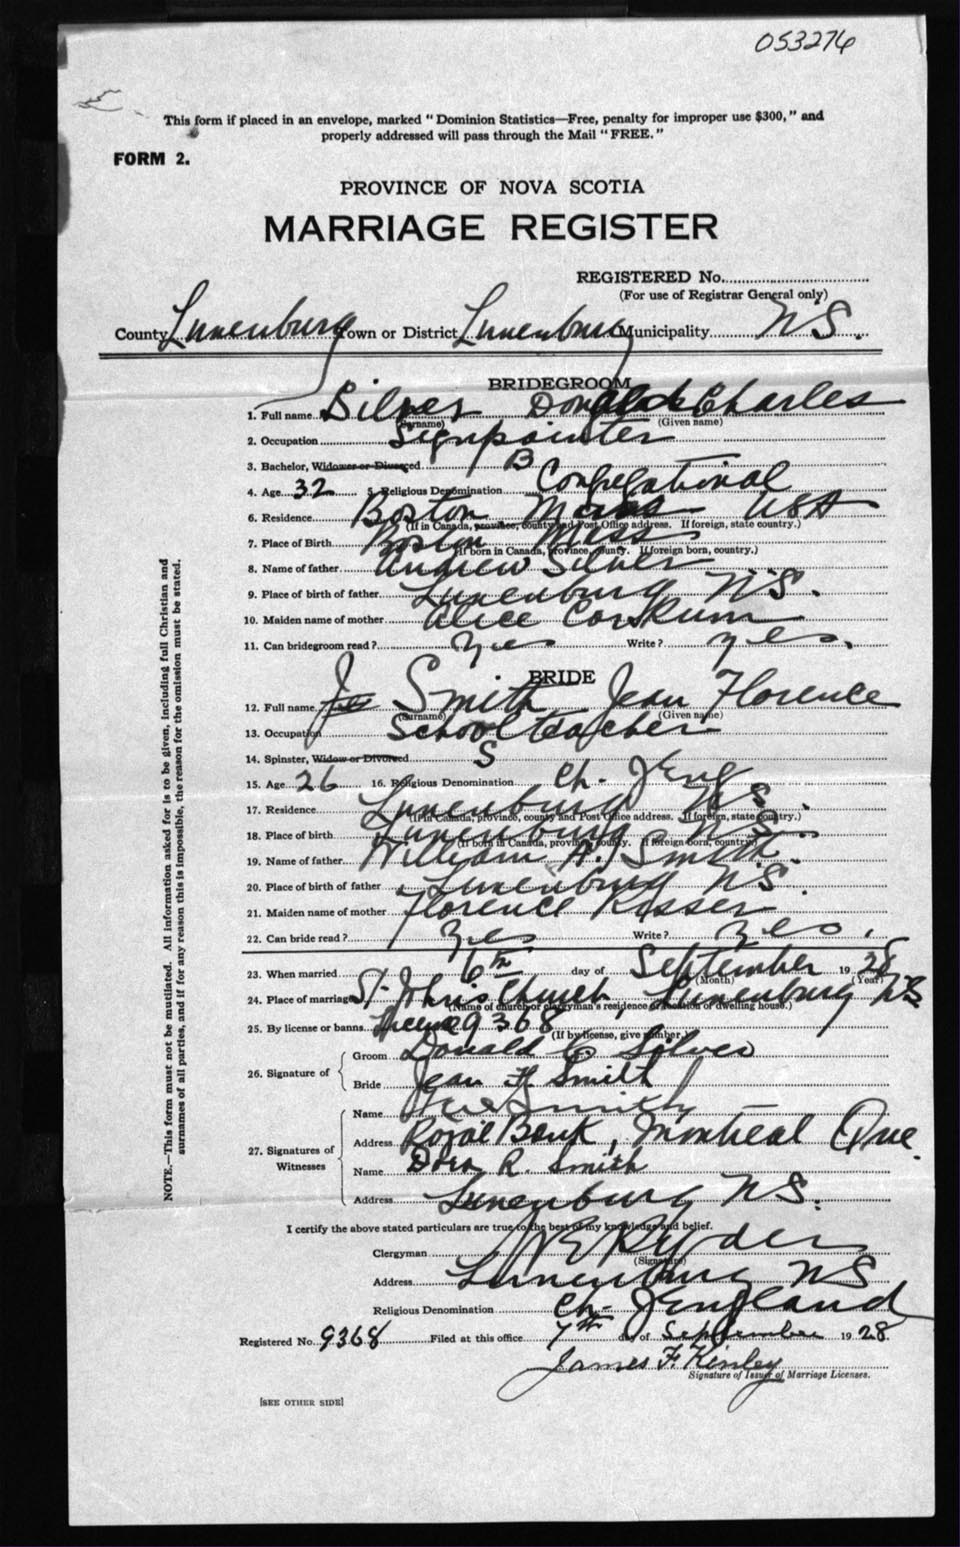 053276
This form if placed in an envelope, marked "Dominion Statistics—Free, penalty for improper use $300," and
properly addressed will pass through the Mail "FREE."
FORM 2.
PROVINCE OF NOVA SCOTIA
MARRIAGE REGISTER
REGISTERED No.
(For use of Registrar General only)
County Lunenburg Town or District Lunenburg Municipality N S.
BRIDEGROOM
1. Full name Silver Donald Charles
(Surname) (Given name)
2. Occupation Signpainter
3. Bachelor, Widower or Divorced B
4. Age 32 5. Religious Denomination Congregational
6. Residence Boston Mass USA
(If in Canada, province, county and Post Office address. If foreign, state country.)
7. Place of Birth Boston Mass
(If born in Canada, province, county. If foreign born, country.)
8. Name of father Andrew Silver
9. Place of birth of father Lunenburg N S.
10. Maiden name of mother Alice Corkum
11. Can bridegroom read? Yes Write? Yes.
BRIDE
12. Full name Smith Jean Florence
(Surname) (Given name)
13. Occupation School teacher
14. Spinster, Widow or Divorced S
15. Age 26 16. Religious Denomination Ch. of Eng
17. Residence Lunenburg N S.
(If in Canada, province, county and Post Office address. If foreign, state country.)
18. Place of birth Lunenburg N S.
(If born in Canada, province, county. If foreign born, country)
19. Name of father William A. Smith.
20. Place of birth of father Lunenburg N S.
21. Maiden name of mother Florence Risser
22. Can bride read? Yes Write? Yes.
23. When married 6th day of September 1928
(Month) (Year)
24. Place of marriage St. John's Church Lunenburg N S
(Name of church or clergyman's residence or location of dwelling house.)
25. By license or banns License 9368
(If by license, give number.)
26. Signature of
Groom Donald C Silver
Bride Jean F Smith
27. Signatures of Witnesses
Name Smith
Address Royal Bank, Montreal Que.
Name Dora R. Smith
Address Lunenburg N S.
I certify the above stated particulars are true to the best of my knowledge and belief.
Clergyman W E Ryder
(Signature)
Address Lunenburg N S
Religious Denomination Ch. of England
Registered No. 9368 Filed at this office 7th day of September 1928.
James F. Kinley
Signature of Issuer of Marriage Licenses.
[SEE OTHER SIDE]
NOTE.—This form must not be mutilated. All information asked for is to be given, including full Christian and
surnames of all parties, and if for any reason this is impossible, the reason for the omission must be stated.